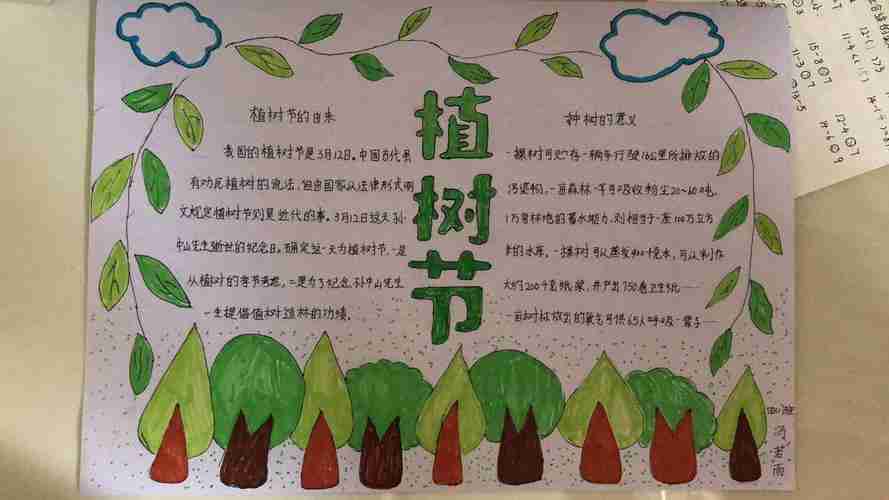 植树节的由来
我国的植树节是3月12日。中国古代虽
有功瓦植树的说法,但由国家从法律形式明
文规定植树节则是近代的事。3月12日这天孙
中山先生逝世的纪念日。确定这一天为植树节,一是
从植树的季节考虑,二是为了纪念孙中山先生
一生提倡值树造林的功绩.
植树节
种树的意义
一棵树可贮存一辆车行驶16公里所排放的
污染物,一亩森林一年可吸收粉尘20~60吨。
1万亩林地的蓄水能力,则相当于一座100万立方
米的水库。一棵树可以蒸发400千克水,可以制作
大约200千克纸浆,并产出750卷卫生纸……
一亩树林放出的氧气可供65人呼吸一辈子……
四(1)班
冯若雨
11-3
15-8
12-4
14-6